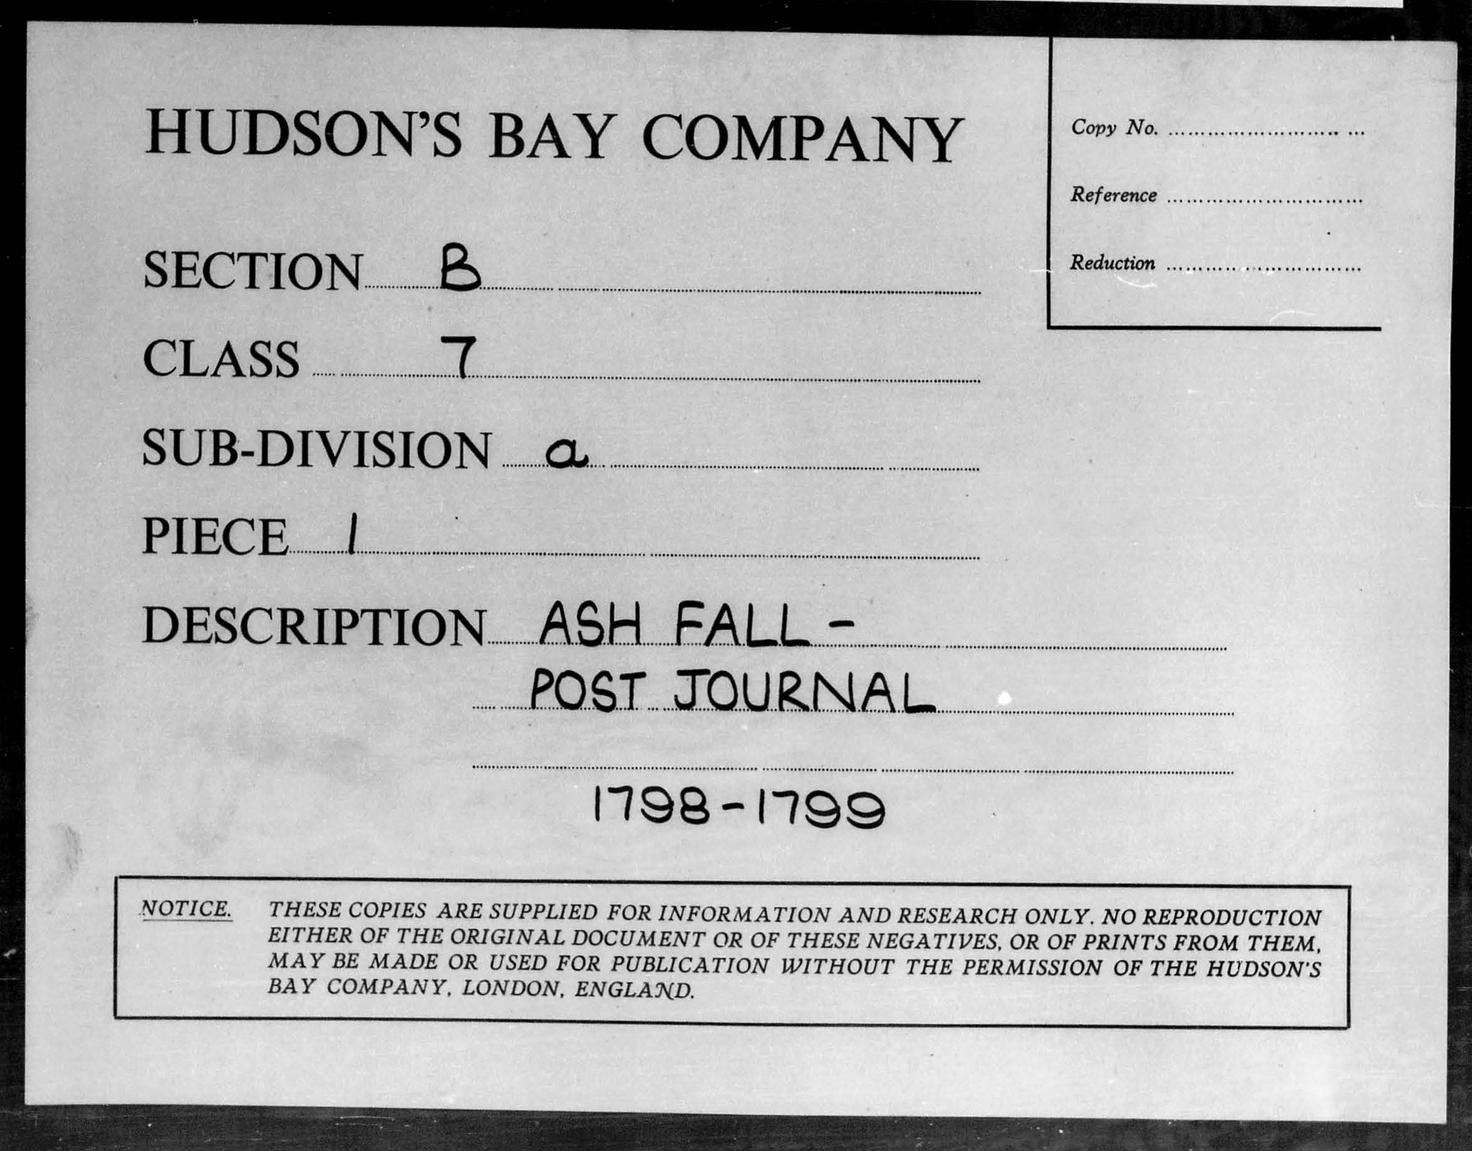 HUDSON'S BAY COMPANY
Copy No. ..............................
Reference ..............................
Reduction ..............................
SECTION B
CLASS 7
SUB-DIVISION a
PIECE 1
DESCRIPTION ASH FALL -
POST JOURNAL
1798-1799
NOTICE. THESE COPIES ARE SUPPLIED FOR INFORMATION AND RESEARCH ONLY. NO REPRODUCTION
EITHER OF THE ORIGINAL DOCUMENT OR OF THESE NEGATIVES, OR OF PRINTS FROM THEM,
MAY BE MADE OR USED FOR PUBLICATION WITHOUT THE PERMISSION OF THE HUDSON'S
BAY COMPANY, LONDON, ENGLAND.